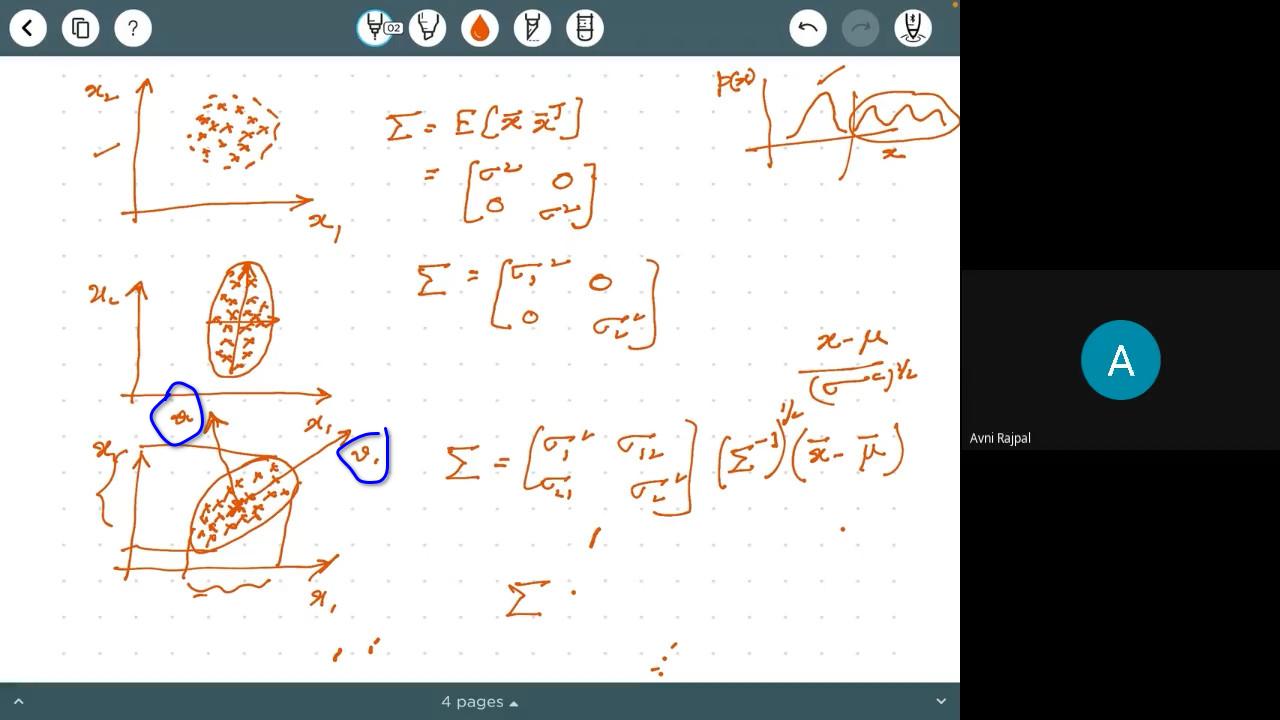 02
x₂
x₁
Σ = E[x̄ x̄ᵀ]
= [σ² 0
0 σ²]
p(x)
x
x₂
x₁
Σ = [σ₁² 0
0 σ₂²]
x-μ
(σ²)^1/2
x₂
x₁
v₁
Σ = [σ₁² σ₁₂
σ₂₁ σ₂²]
(Σ⁻¹)^1/2 (x̄ - μ̄)
Σ
A
Avni Rajpal
4 pages